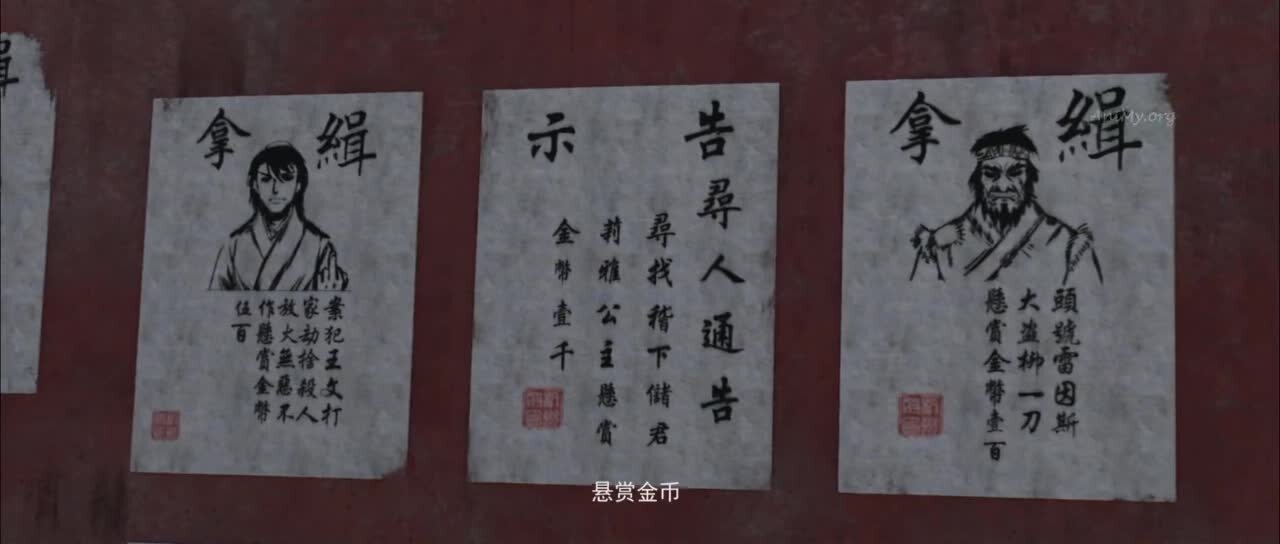 緝拿
案犯王文打
家劫捨殺人
放火無惡不
作懸賞金幣
伍百
告示
尋人通告
尋找稽下儲君
莉雅公主懸賞
金幣壹千
緝拿
頭號雷因斯
大盜柳一刀
懸賞金幣壹百
AniMy.org
悬赏金币